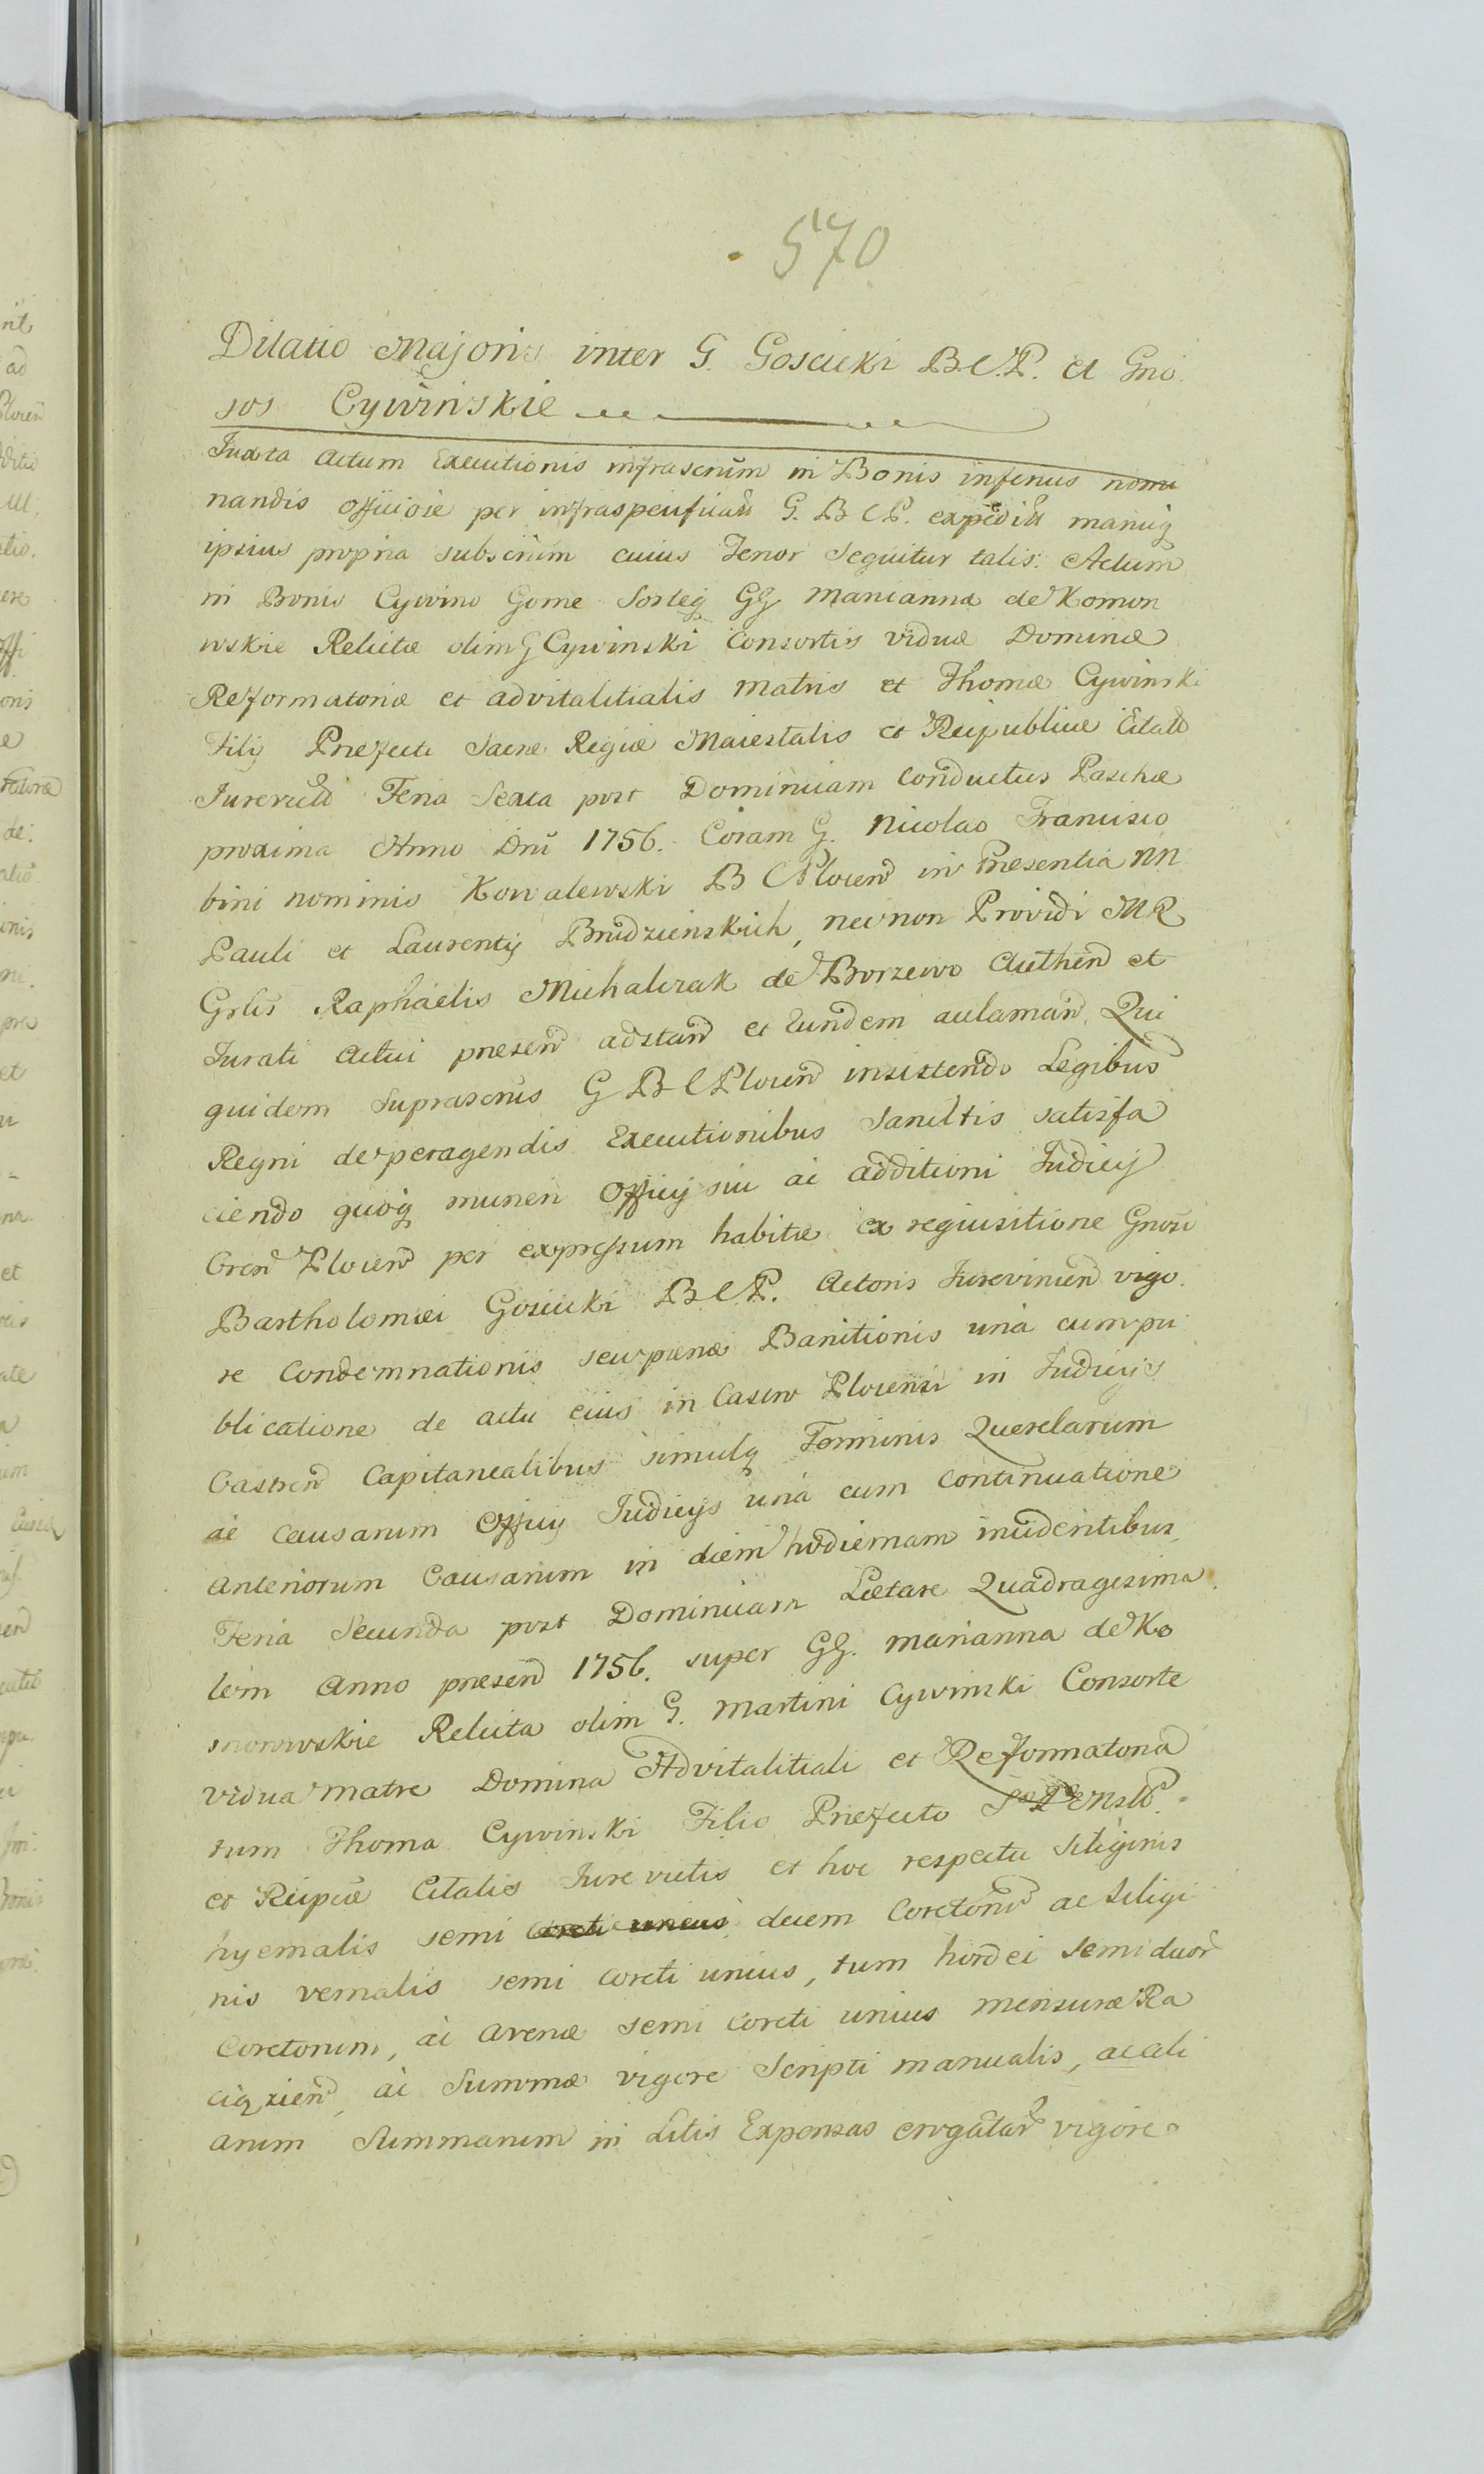 570
Dilatio Majoris inter G. Goscicki B.C.P. et Gño
sos Cywinskie
Juxta actum Executionis infrascrm̃ in Bonis inferius nomi
nandis officiose per infraspecificatũ G. B C P. expeditũ manuq
ipsius propria subscrm̃ cuius Tenor sequitur talis. Actum
in Bonis Cywino Gorne Sorteq GG Marianna de Komor
wskie Relictæ olim G Cywinski Consortis viduæ Dominæ
Reformatoriæ et advitalitialis Matris et Thomæ Cywinski
Filij Præfecti Sacræ Regiæ Maiestatis et Reipublicæ Citatõ
Jurevictõ Feria Sexta post Dominicam Conductus Paschæ
proxima Anno Dnĩ 1756. Coram G. Nicolao Francisco
bini nominis Kowalewski B C Plocen in Præsentia NN
Pauli et Laurentij Brudzienskich, necnon Providi MR
Grlis Raphaelis Michalczak de Borzewo Authen et
Jurati actui præsen adstan et Eundem aclaman. Qui
quidem suprascrĩs G B C Plocen insistendo Legibus
Regni de peragendis Executionibus Sancitis satisfa
ciendo quoq muneri Officij sui ac additioni Judicij
Cren Plocen per expressum habitæ ex requisitione Gnosi
Bartholomæi Goscicki B.C.P. Actoris Jurevincen vigo
re Condemnationis seu pænæ Banitionis una cum pu
blicatione de actu eius in Castro Plocensi in Judicijs
Castren Capitanealibus simulq Terminis Querelarum
ac Causarum Officij Judicijs una cum Continuatione
anteriorum Causarum in diem hodiernam incidentibus
Feria Secunda post Dominicam Lætare Quadragesima
lem Anno præsen 1756. super GG. Marianna de Ko
morowskie Relicta olim G. Martini Cywinski Consorte
vidua Matre Domina Advitalitiali et Reformatoria
tum Thoma Cywinski Filio Præfecto
et Reipcæ Citatis Jurevictis et hoc respectu Siliginis
hyemalis semi coreti unius decem Coretorũ ac Siligi
nis vernalis semi coreti unius, tum hordei semi duor
Coretorum, ac avenæ semi coreti unius mensuræ Ra
ciązien, ac Summæ vigore Scripti manualis, ac ali
arum Summarum in Litis Expensas erogatar vigore